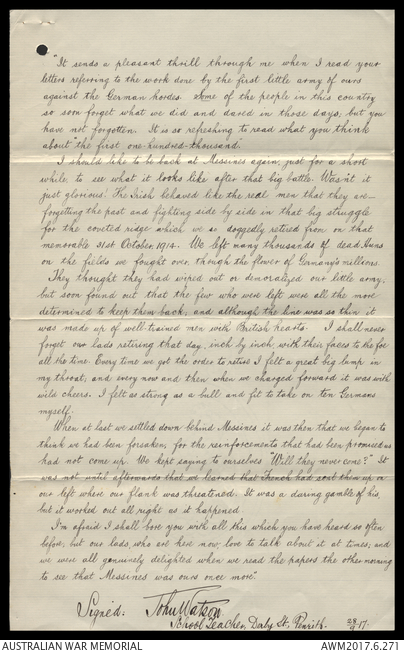 "It sends a pleasant thrill through me when I read your
letters referring to the work done by the first little army of ours
against the German hordes. Some of the people in this country
so soon forget what we did and dared in those days, but you
have not forgotten. It is so refreshing to read what you think
about the first one-hundred-thousand".
I should like to be back at Messines again, just for a short
while, to see what it looks like after that big battle. Wasn't it
just glorious! The Irish behaved like the real men that they are—
forgetting the past and fighting side by side in that big struggle
for the coveted ridge which we so doggedly retired from on that
memorable 31st October, 1914. We left many thousands of dead Huns
on the fields we fought over, though the flower of Germany's millions.
They thought they had wiped out or demoralized our little army,
but soon found out that the few who were left were all the more
determined to keep them back, and although the line was so thin it
was made up of well-trained men with British hearts. I shall never
forget our lads retiring that day, inch by inch, with their faces to the foe
all the time. Every time we got the order to retire I felt a great big lump in
my throat, and every now and then when we charged forward it was with
wild cheers. I felt as strong as a bull and fit to take on ten Germans
myself.
When at last we settled down behind Messines it was then that we began to
think we had been forsaken, for the reinforcements that had been promised us
had not come up. We kept saying to ourselves "Will they never come?" It
was not until afterwards that we learned that French had sent them up on
our left where our flank was threatened. It was a daring gamble of his,
but it worked out all right as it happened.
I'm afraid I shall bore you with all this which you have heard so often
before, but our lads who are here now, love to talk about it at times, and
we were all genuinely delighted when we read the papers the other morning
to see that Messines was ours once more".
Signed: John Watson
School Teacher, Derby St., Penrith. 28/9/17.
AUSTRALIAN WAR MEMORIAL
AWM2017.6.271